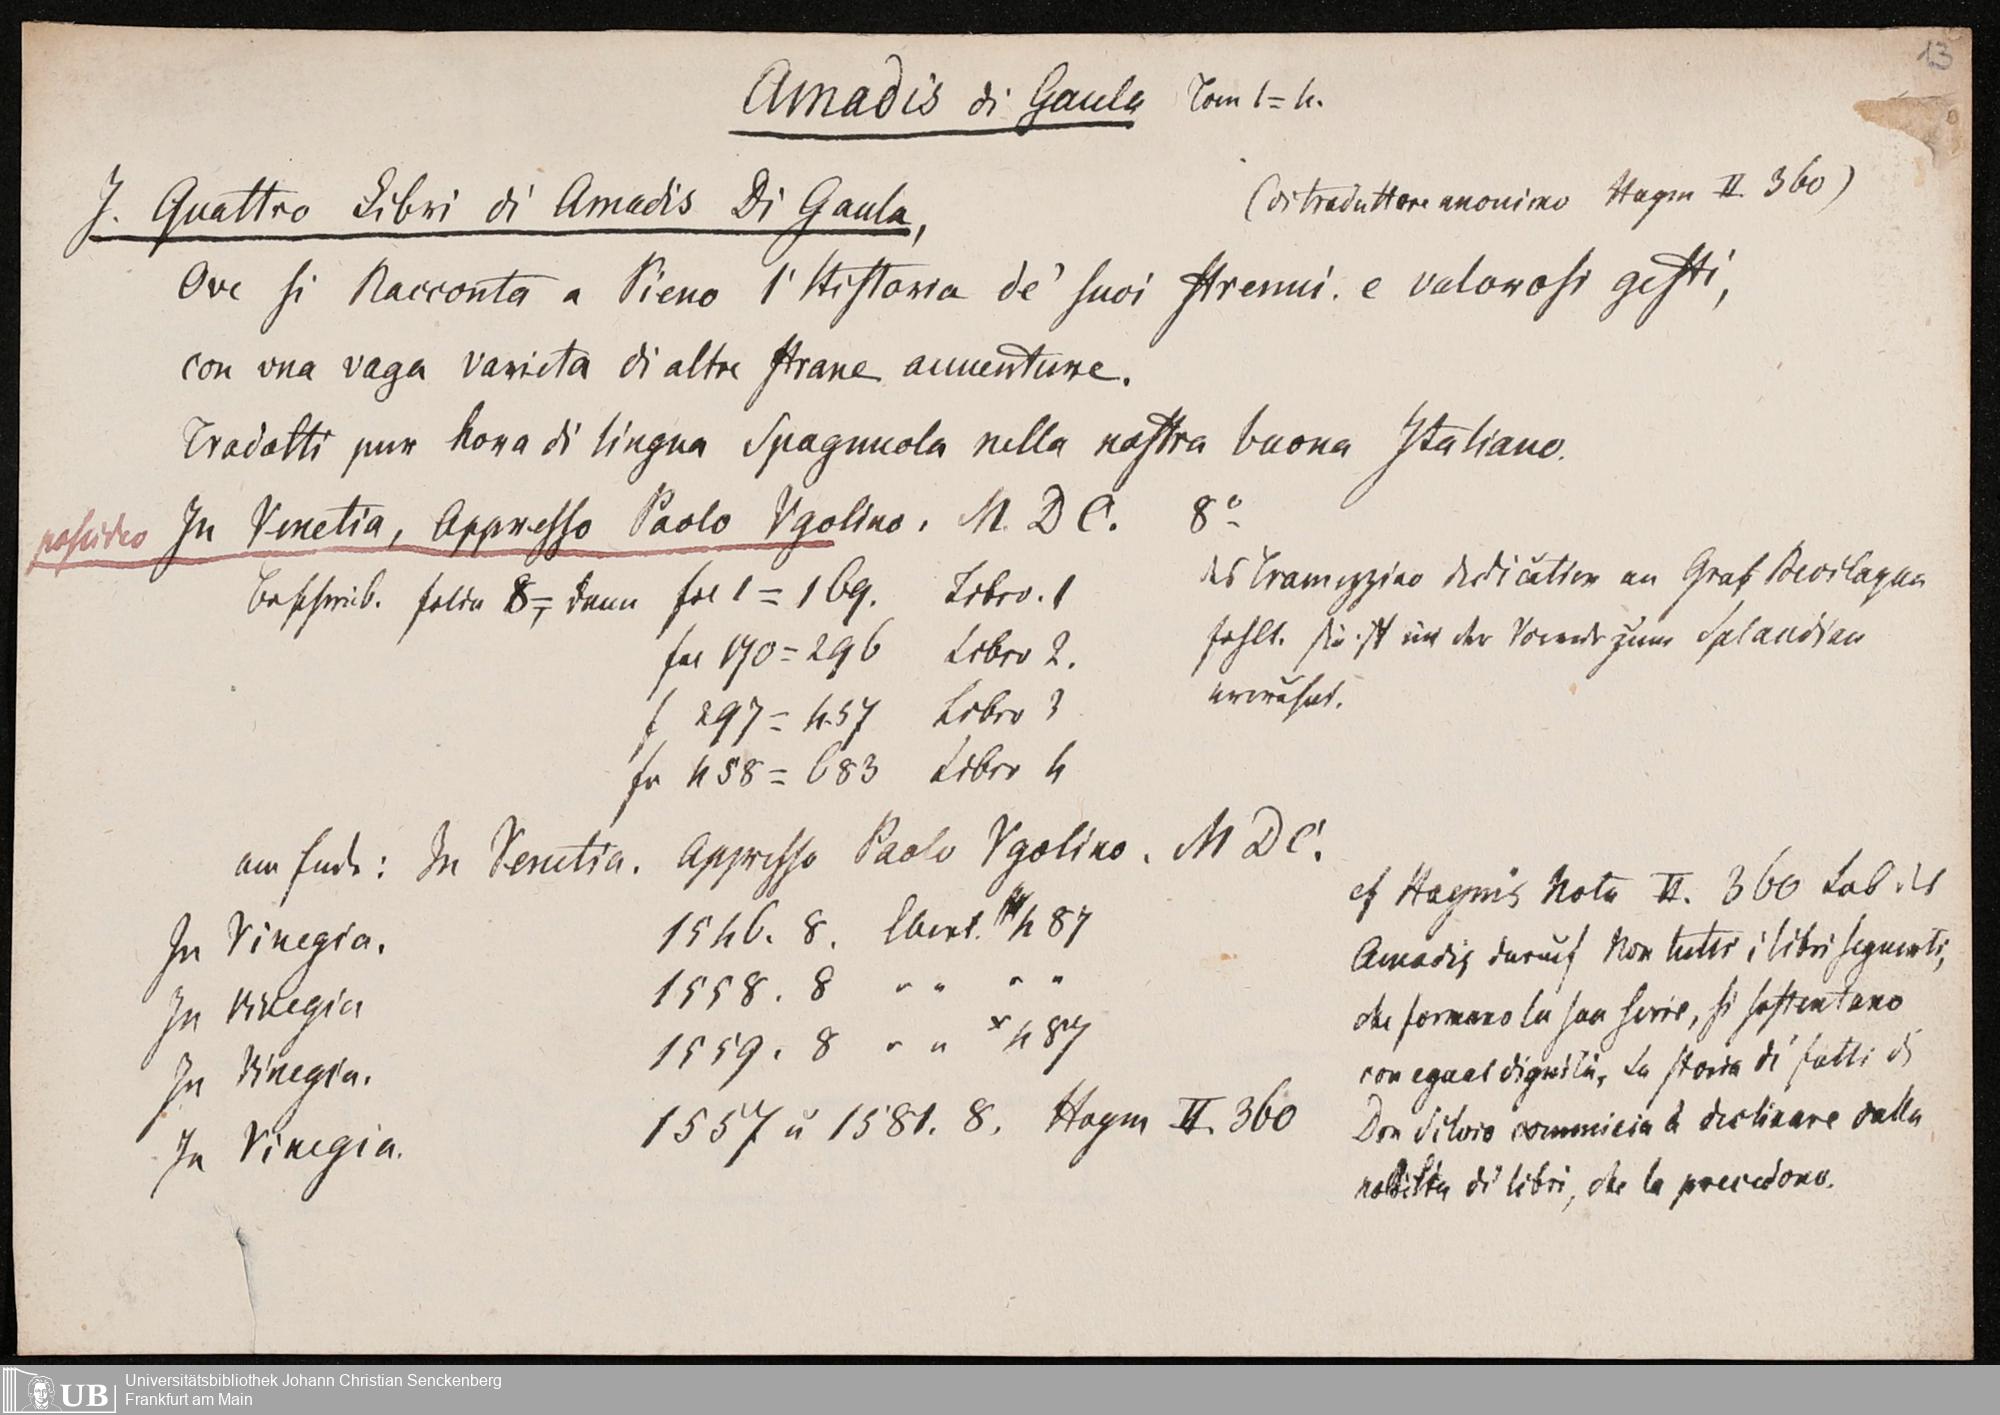 13
Amadis di Gaula Tom 1=4.
I. Quattro Libri di Amadis Di Gaula,
(di traduttore anonimo Haym II. 360)
Ove si Racconta a Pieno l'Historia de' suoi strenui. e valorosi gesti,
con vna vaga varieta di altre strane auuenture.
Tradotti pur hora di lingua Spagnuola nella nostra buona Italiano.
possideo In Venetia, Appresso Paolo Vgolino. M. D C. 8º
folia 8=, dann fol 1=169. Libro. 1
fol 170=296 Libro 2.
f 297=457 Libro 3
fo 458=683 Libro 4
des Tramezzino Dedication an Graf Bevilaqua
fehlt. sie ist in der zum Splandian
am Ende: In Venetia. Appresso Paolo Vgolino. M D C.
In Vinegia. 1546. 8. Ebert. 487
In Vinegia 1558. 8 " " " "
In Vinegia. 1559. 8 " " * 487
In Vinegia. 1557 u 1581. 8. Haym II. 360
cf Hayms Nota II. 360 Lob des
Amadis darauf Non tutti i libri seguenti,
che formano la sua serie, si sostentano
con egual dignità, La storia di fatti di
Don Silvio comincia à declinare dalla
nobiltà di libri, che la precedono.
Universitätsbibliothek Johann Christian Senckenberg
Frankfurt am Main
UB